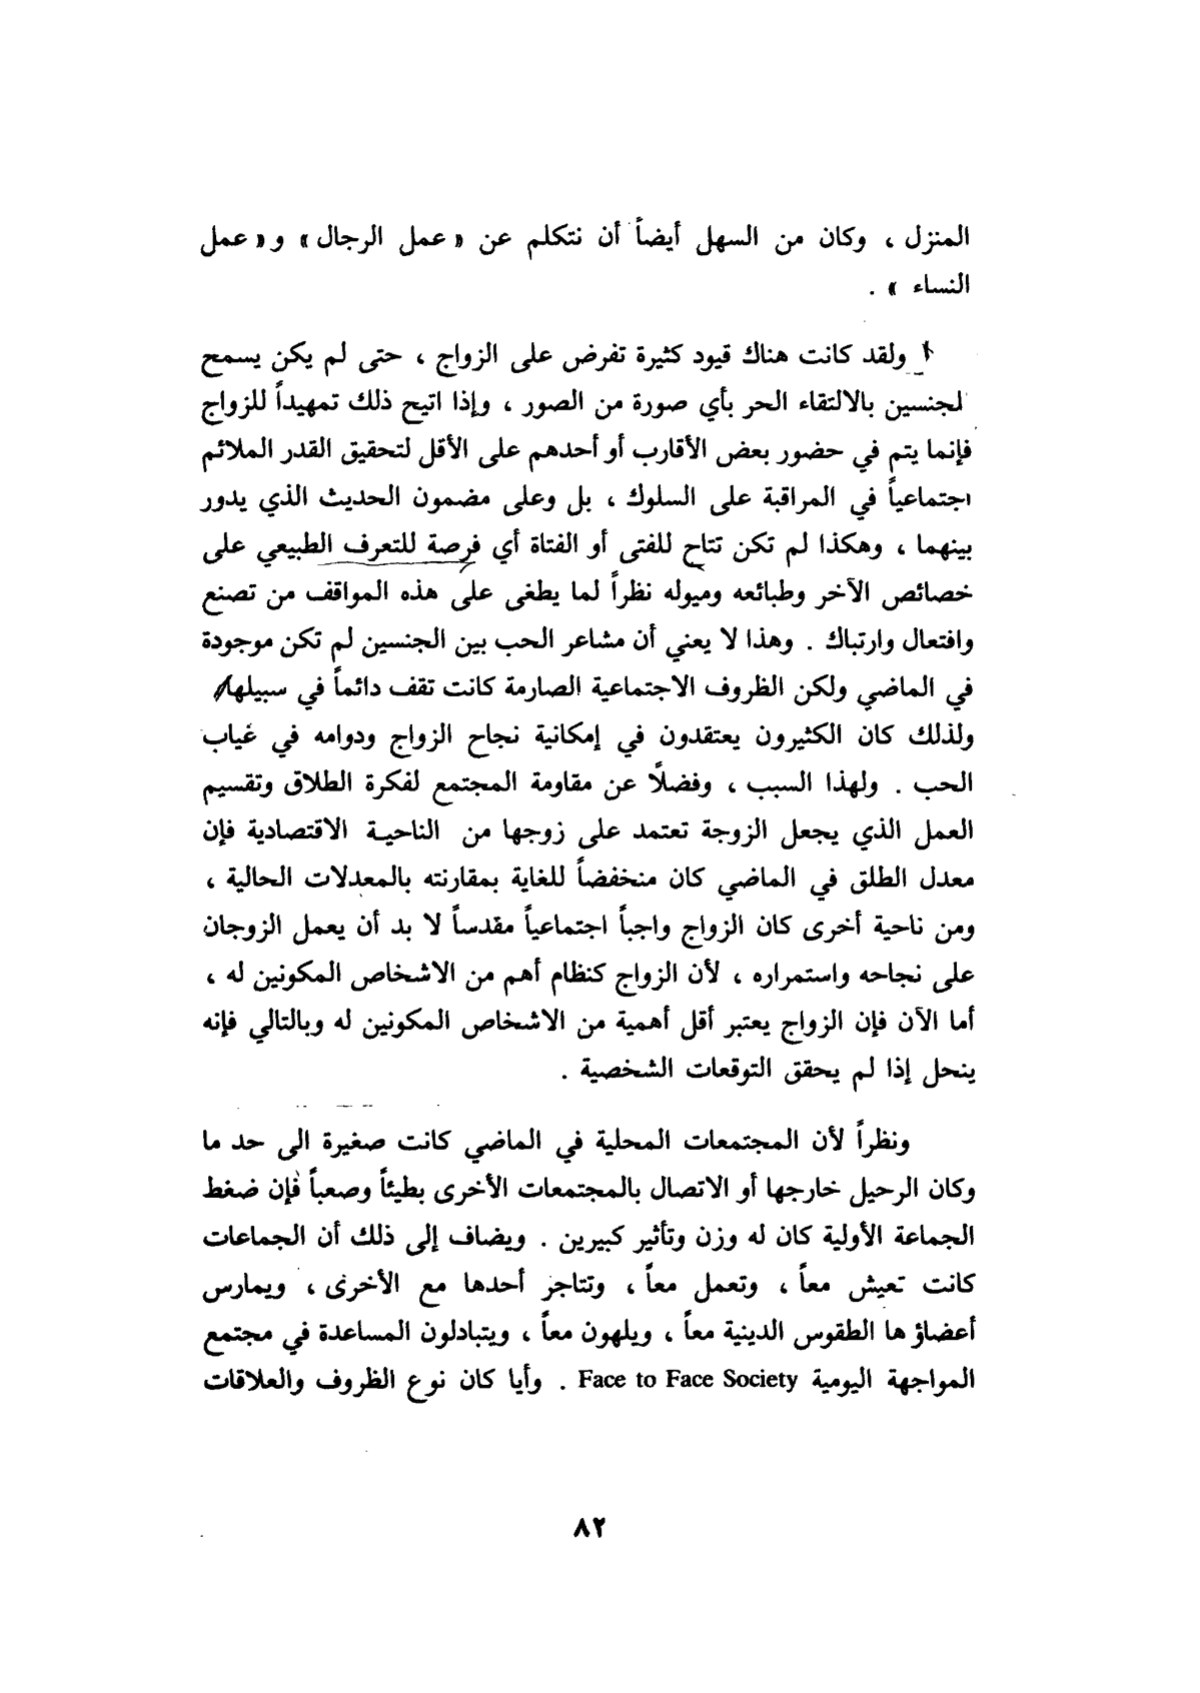 المنزل ، وكان من السهل أيضاً أن نتكلم عن « عمل الرجال » و « عمل
النساء » .
ولقد كانت هناك قيود كثيرة تفرض على الزواج ، حتى لم يكن يسمح
لجنسين بالالتقاء الحر بأي صورة من الصور ، وإذا اتيح ذلك تمهيداً للزواج
فإنما يتم في حضور بعض الأقارب أو أحدهم على الأقل لتحقيق القدر الملائم
اجتماعياً في المراقبة على السلوك ، بل وعلى مضمون الحديث الذي يدور
بينهما ، وهكذا لم تكن تتاح للفتى أو الفتاة أي فرصة للتعرف الطبيعي على
خصائص الآخر وطبائعه وميوله نظراً لما يطغى على هذه المواقف من تصنع
وافتعال وارتباك . وهذا لا يعني أن مشاعر الحب بين الجنسين لم تكن موجودة
في الماضي ولكن الظروف الاجتماعية الصارمة كانت تقف دائماً في سبيلها
ولذلك كان الكثيرون يعتقدون في إمكانية نجاح الزواج ودوامه في غياب
الحب . ولهذا السبب ، وفضلاً عن مقاومة المجتمع لفكرة الطلاق وتقسيم
العمل الذي يجعل الزوجة تعتمد على زوجها من الناحية الاقتصادية فإن
معدل الطلق في الماضي كان منخفضاً للغاية بمقارنته بالمعدلات الحالية ،
ومن ناحية أخرى كان الزواج واجباً اجتماعياً مقدساً لا بد أن يعمل الزوجان
على نجاحه واستمراره ، لأن الزواج كنظام أهم من الاشخاص المكونين له ،
أما الآن فإن الزواج يعتبر أقل أهمية من الاشخاص المكونين له وبالتالي فإنه
ينحل إذا لم يحقق التوقعات الشخصية .
ونظراً لأن المجتمعات المحلية في الماضي كانت صغيرة الى حد ما
وكان الرحيل خارجها أو الاتصال بالمجتمعات الأخرى بطيئاً وصعباً فإن ضغط
الجماعة الأولية كان له وزن وتأثير كبيرين . ويضاف إلى ذلك أن الجماعات
كانت تعيش معاً ، وتعمل معاً ، وتتاجر أحدها مع الأخرى ، ويمارس
أعضاؤها الطقوس الدينية معاً ، ويلهون معاً ، ويتبادلون المساعدة في مجتمع
المواجهة اليومية Face to Face Society . وأيا كان نوع الظروف والعلاقات
٨٢